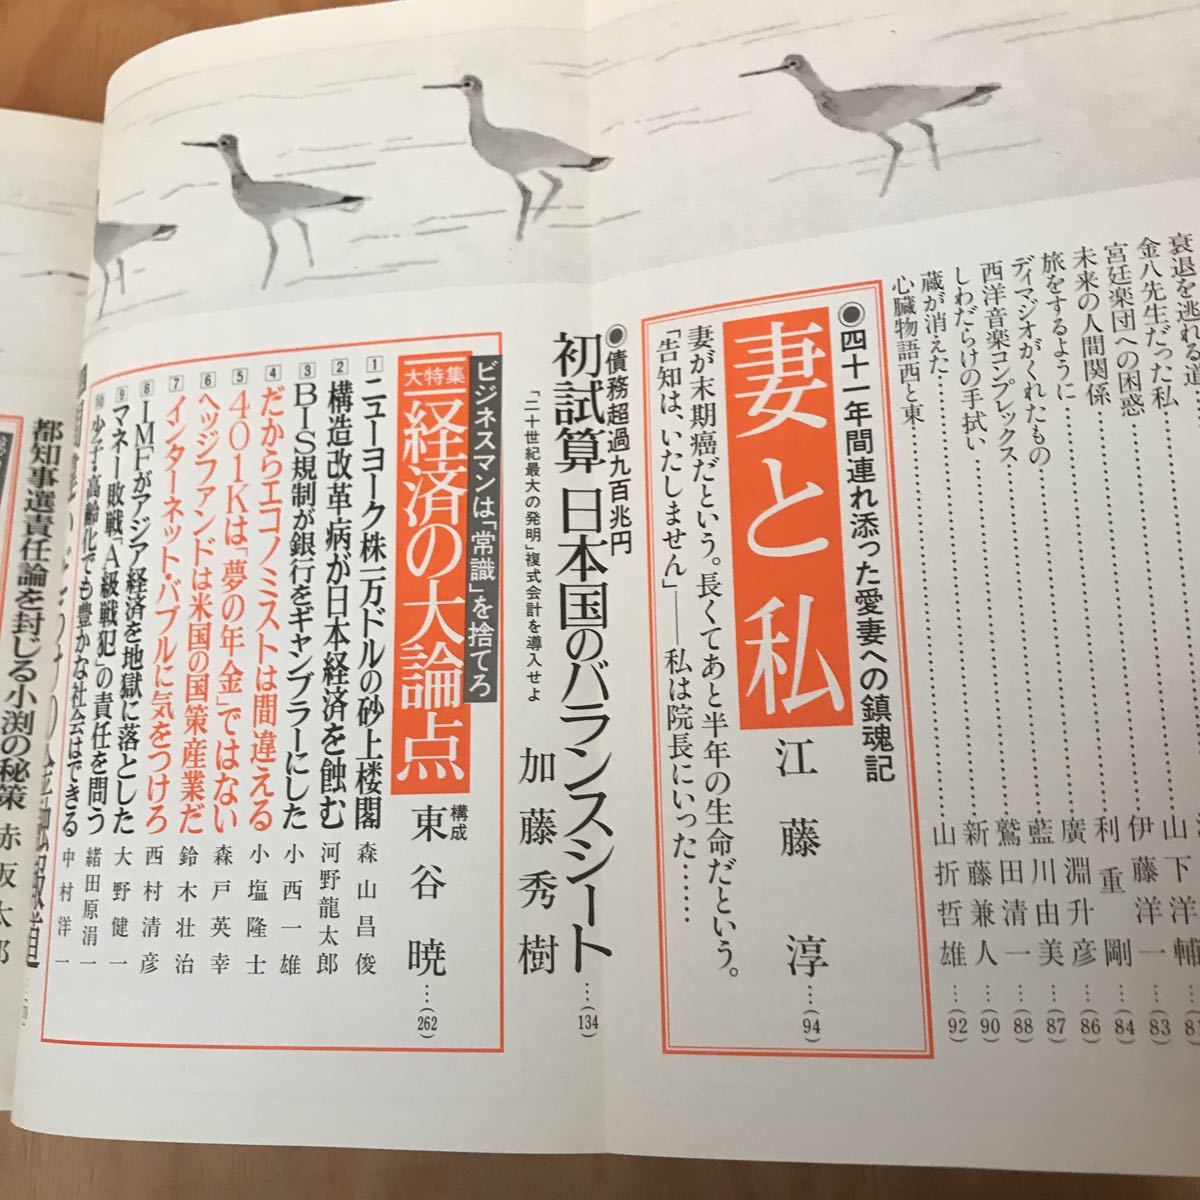 衰退を逃れる道
山下洋輔
金八先生だった私……伊藤洋一…(83)
宮廷楽団への困惑……利重剛…(84)
未来の人間関係……廣淵升彦…(86)
旅をするように……藍川由美…(87)
ディマジオがくれたもの……鷲田清一…(88)
西洋音楽コンプレックス……新藤兼人…(90)
しわだらけの手拭い……山折哲雄…(92)
蔵が消えた
心臓物語西と東
◉四十一年間連れ添った愛妻への鎮魂記
妻と私
江藤淳…(94)
妻が末期癌だという。長くてあと半年の生命だという。
「告知は、いたしません」――私は院長にいった……
◉債務超過九百兆円
初試算 日本国のバランスシート…(134)
「二十世紀最大の発明」複式会計を導入せよ
加藤秀樹
ビジネスマンは「常識」を捨てろ
大特集
経済の大論点
構成
東谷暁…(262)
1 ニューヨーク株一万ドルの砂上楼閣 森山昌俊
2 構造改革病が日本経済を蝕む 河野龍太郎
3 BIS規制が銀行をギャンブラーにした 小西一雄
4 だからエコノミストは間違える 小塩隆士
5 401Kは「夢の年金」ではない 森戸英幸
6 ヘッジファンドは米国の国策産業だ 鈴木壮治
7 インターネット・バブルに気をつけろ 西村清彦
8 IMFがアジア経済を地獄に落とした 大野健一
9 マネー敗戦「A級戦犯」の責任を問う 緒田原涓一
10 少子・高齢化でも豊かな社会はできる 中村洋一
都知事選責任論を封じる小渕の秘策 赤坂太郎